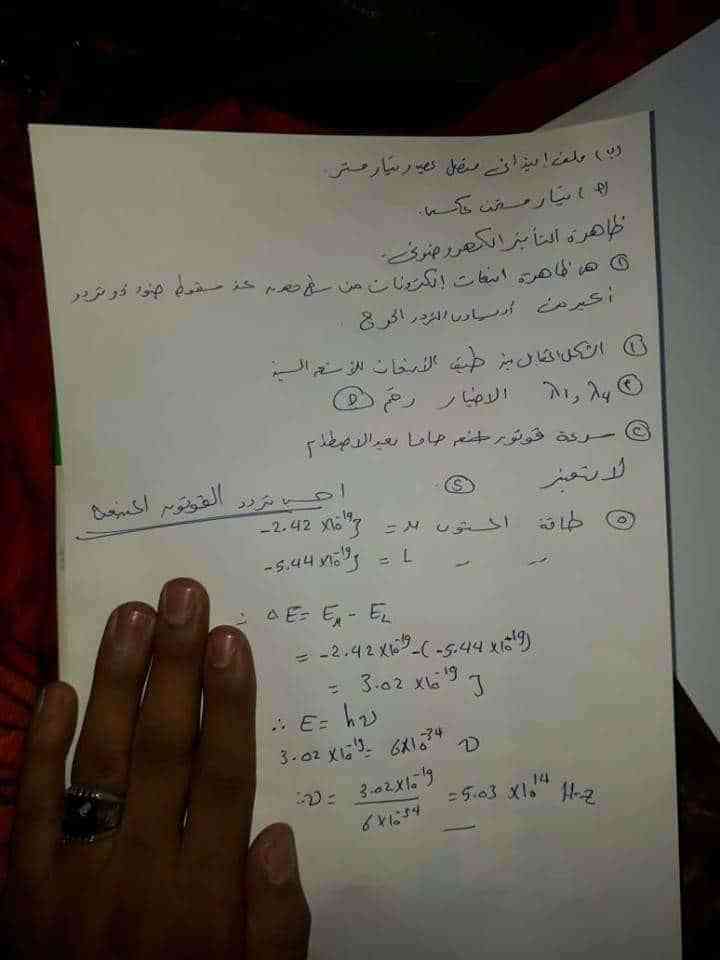 (ب) ملف ابتدائي متصل بمصدر تيار مستمر.
(م) تيار مستحث عكسيا.
ظاهرة التأثير الكهروضوئي.
① هي ظاهرة انبعاث إلكترونات من سطح معدن عند سقوط ضوء ذو تردد
أكبر من أو يساوي التردد الحرج
① الشكل المقابل يبين طيف الانبعاث للأشعة السينية
③ λ1, λ4 الاختيار رقم Ⓓ
② سرعة فوتون بعد الاصطدام
لا تتغير
احسب تردد الفوتون المنبعث
⑤ طاقة المستوى M = -2.42 × 10^-19 J
" " L = -5.44 × 10^-19 J
∴ ΔE = E_M - E_L
= -2.42 × 10^-19 - (-5.44 × 10^-19)
= 3.02 × 10^-19 J
∴ E = hν
3.02 × 10^-19 = 6 × 10^-34 ν
∴ ν = 3.02 × 10^-19 / 6 × 10^-34 = 5.03 × 10^14 Hz